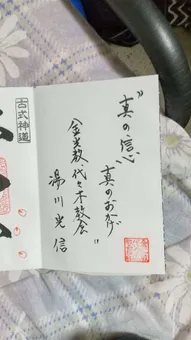 “真の信心
真のおかげ”
金光教代々木教会
湯川光信
古式神道